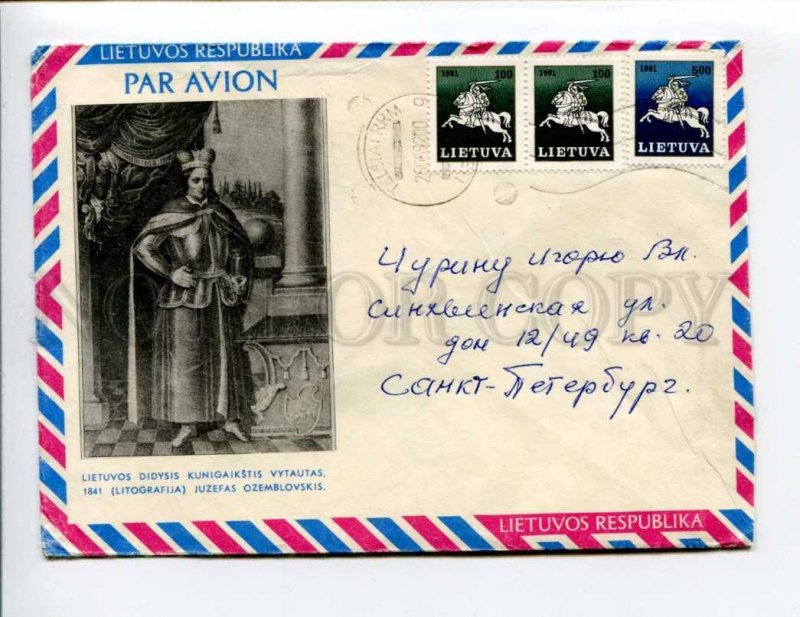 LIETUVOS RESPUBLIKA
PAR AVION
1991 100
LIETUVA
1991 100
LIETUVA
1991 500
LIETUVA
Чурину Игорю Вл.
Синявинская ул.
дом 12/49 кв. 20
Санкт-Петербург.
LIETUVOS DIDYSIS KUNIGAIKŠTIS VYTAUTAS,
1841 (LITOGRAFIJA) JUZEFAS OZEMBLOVSKIS.
LIETUVOS RESPUBLIKA